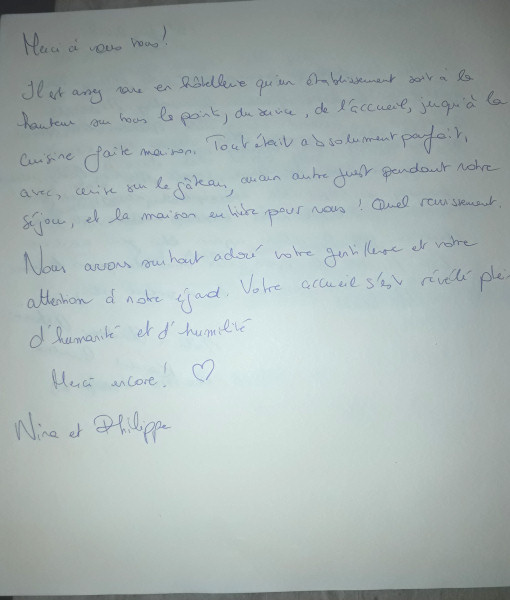 Merci à vous tous!
Il est assez rare en hôtellerie qu'un établissement soit à la
hauteur sur tous les points, du service, de l'accueil, jusqu'à la
cuisine faite maison. Tout était absolument parfait,
avec, cerise sur le gâteau, aucun autre guest pendant notre
séjour, et la maison entière pour nous! Quel ravissement.
Nous avons surtout adoré votre gentillesse et votre
attention à notre égard. Votre accueil s'est révélé plein
d'humanité et d'humilité
Merci encore! ♡
Nina et Philippe